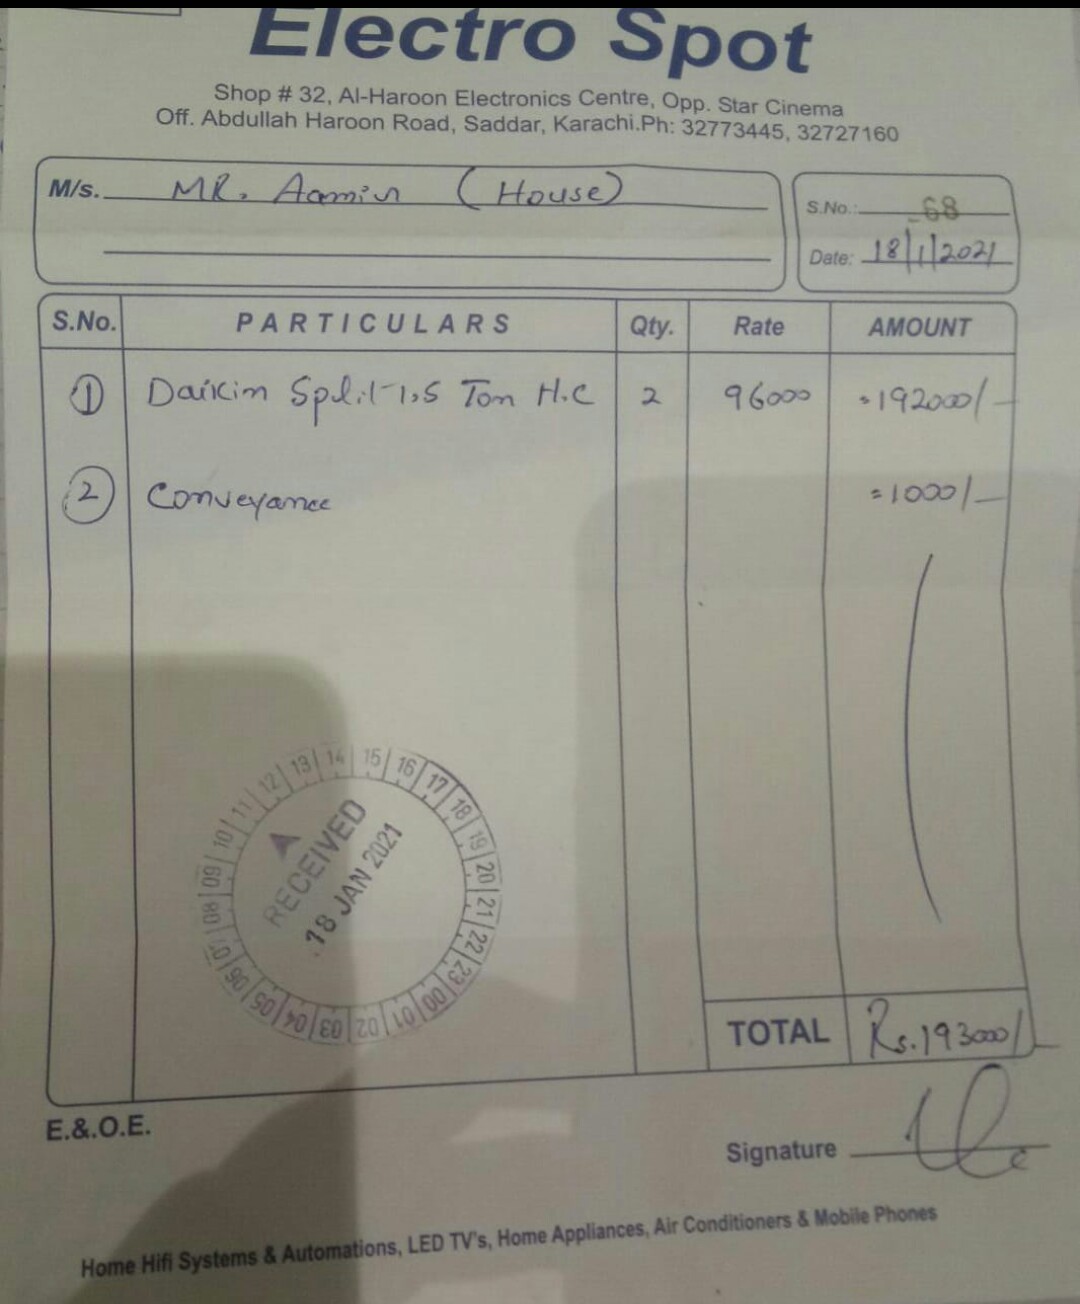 Electro Spot
Shop # 32, Al-Haroon Electronics Centre, Opp. Star Cinema
Off. Abdullah Haroon Road, Saddar, Karachi.Ph: 32773445, 32727160
M/s. MR. Aamir (House)
S.No.: 68
Date: 18/1/2021
S.No. PARTICULARS Qty. Rate AMOUNT
1 Daikin Split 1.5 Ton H.C 2 96000 =192000/-
2 Conveyance =1000/-
13 14 15 16 17 18 19 20 21 22 23 00 01 02 03 04 05 06 07 08 09 10 11 12
RECEIVED
18 JAN 2021
TOTAL Rs.193000/-
E.&.O.E.
Signature
Home Hifi Systems & Automations, LED TV's, Home Appliances, Air Conditioners & Mobile Phones